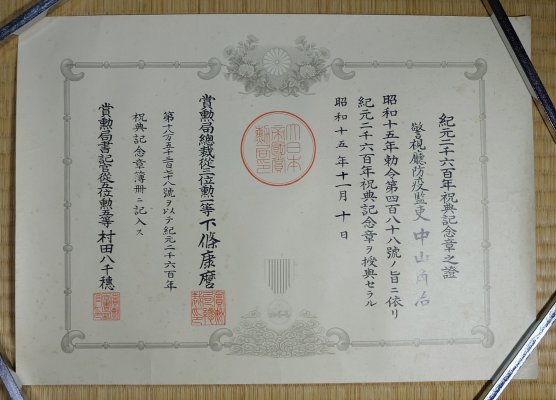 紀元二千六百年祝典記念章之證
警視廳防疫監吏 中山角治
昭和十五年勅令第四百八十八號ノ旨ニ依リ
紀元二千六百年祝典記念章ヲ授與セラル
昭和十五年十一月十日
大日本帝國賞勲局印
賞勲局總裁從三位勲二等下條康麿
號ヲ以テ紀元二千六百年
祝典記念章簿冊ニ記入ス
賞勲局書記官從五位勲五等村田八千穗